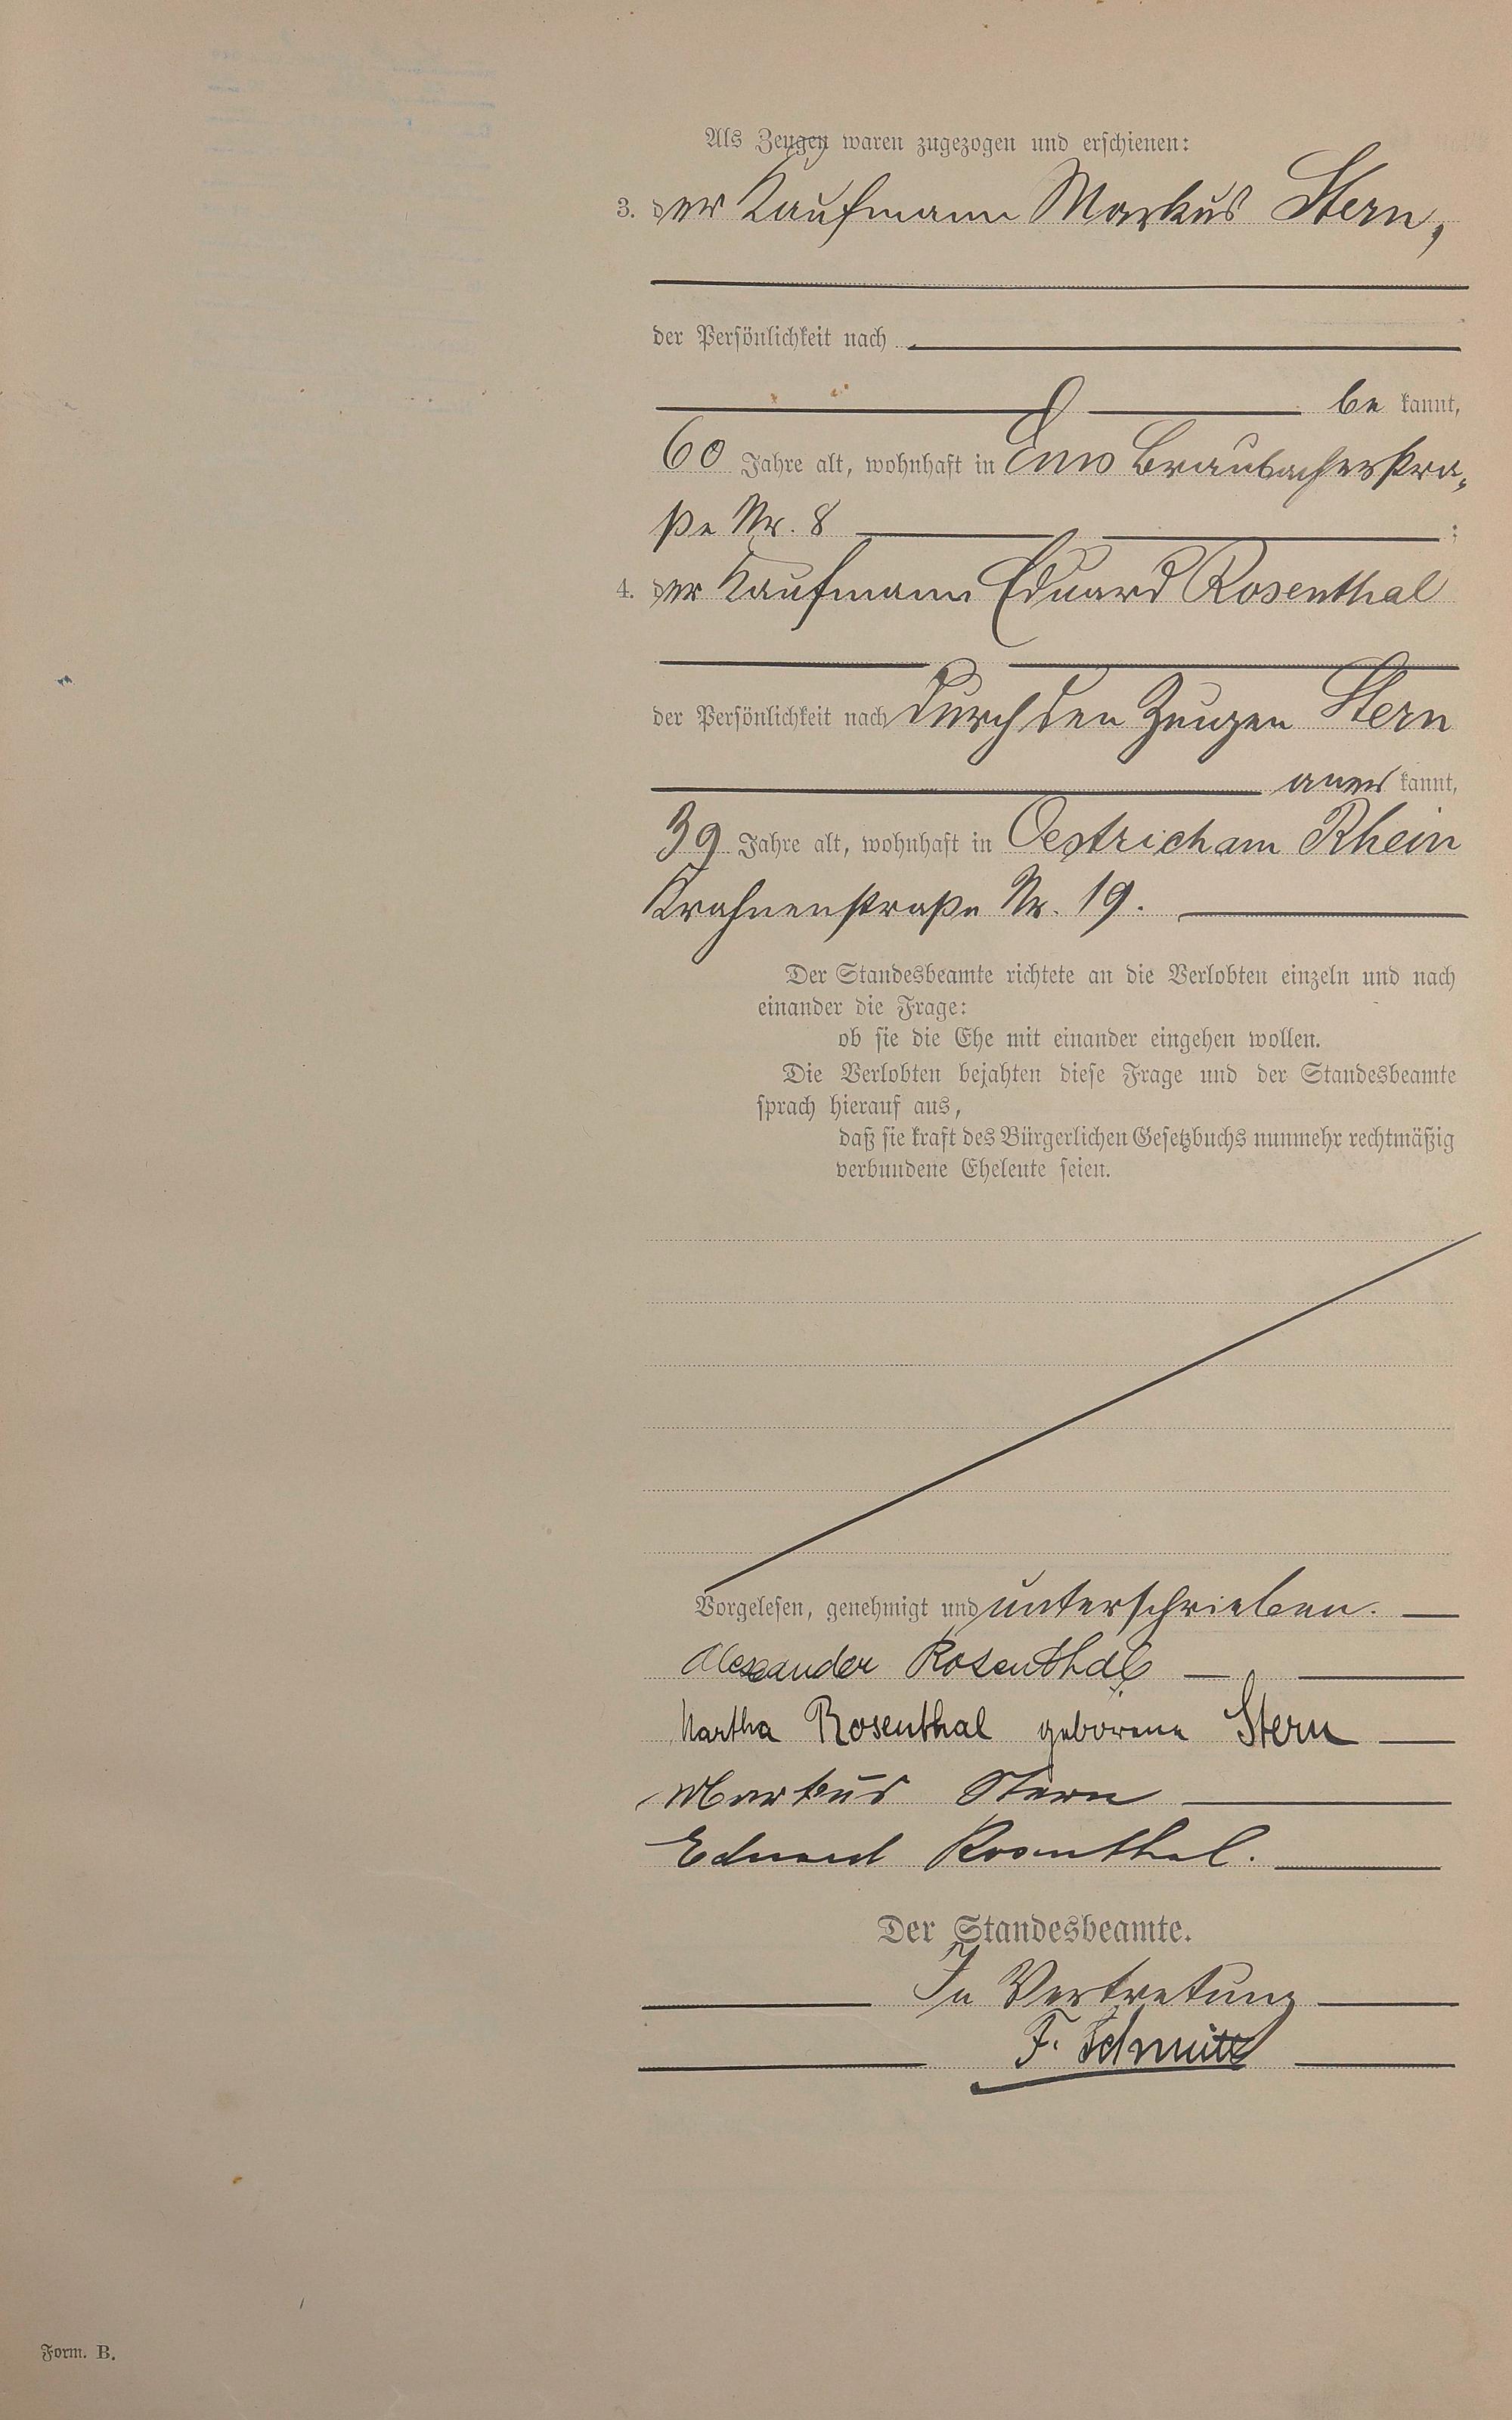 Als Zeugen waren zugezogen und erschienen:
3. der Kaufmann Markus Stern,
der Persönlichkeit nach
be kannt,
60 Jahre alt, wohnhaft in Ems Braubacherstra-
ße Nr. 8 ;
4. der Kaufmann Eduard Rosenthal
der Persönlichkeit nach durch den Zeugen Stern
aner kannt,
39 Jahre alt, wohnhaft in Oestrich am Rhein
Krahnenstraße Nr. 19.
Der Standesbeamte richtete an die Verlobten einzeln und nach
einander die Frage:
ob sie die Ehe mit einander eingehen wollen.
Die Verlobten bejahten diese Frage und der Standesbeamte
sprach hierauf aus,
daß sie kraft des Bürgerlichen Gesetzbuchs nunmehr rechtmäßig
verbundene Eheleute seien.
Vorgelesen, genehmigt und unterschrieben.
Alexander Rosenthal
Martha Rosenthal geborene Stern
Markus Stern
Eduard Rosenthal.
Der Standesbeamte.
In Vertretung
F. Schmitt
Form. B.